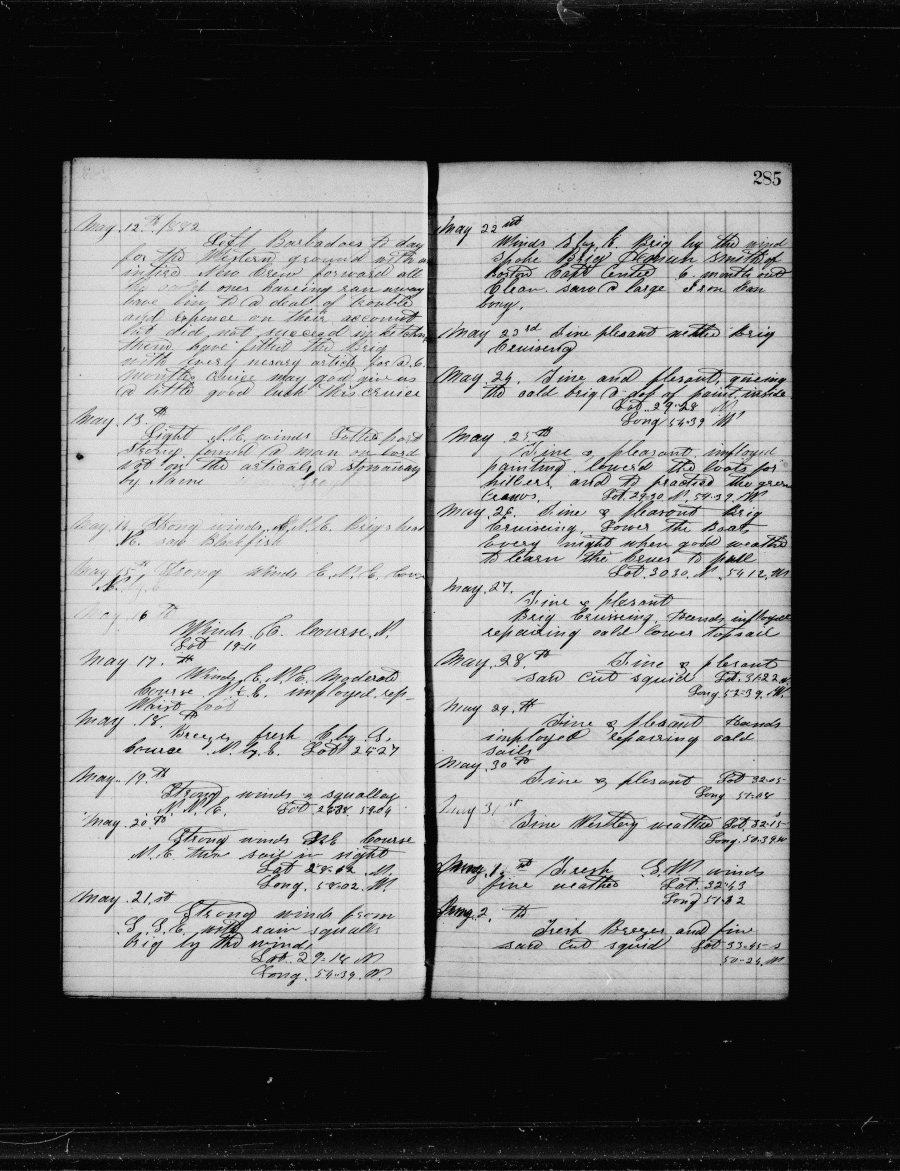 May 12th 1882
Left Barbadoes to day
for the Western ground with a
intire New Crew forward all
the old ones haveing ran away
have bin to a deal of trouble
and expence on their account
but did not succeed in
them have fitted the Brig
with every nesary article for a 6
months Cruise may god give us
a little good luck this cruise
May 13th
Light N.E. winds Latter part
Strong found a man on bord
not on the articals a stowaway
by Name
May 14 Strong winds Brig head
N. saw Blackfish
May 15th Strong Winds E.N.E. Course
N. by E
May 16th
Winds E. Course N.
Lat 19-11
May 17th
Winds E.N.E. Moderate
Course N.E. imployed rep
Waist boat
May 18th
Breezes fresh E by S.
Course N. by E. Lat 24-27
May 19th
Strong winds & squalley
N.N.E. Lat
May 20th
Strong winds Course
N.E. two sail in sight
Lat N.
Long. 58-02 W.
May 21st
Strong winds from
S.S.E. with rain squalls
brig by the wind,
Lat 29-18 N
Long. 54-39 W.
285
May 22st
Winds S by E. Brig by the wind
Spoke Brig Hannah Smith of
Boston Capt 6 months out
Clean. saw a large Iron Can
bouy,
May 23rd Fine plesant wether Brig
Cruiseing
May 24. Fine and plesant, giveing
the old brig a dop of paint inside
Lat 29-28 N
Long 54-39 W
May 25th
Fine & pleasant imployed
painting lowerd the boats for
and to practice the green
Crews. Lat. 29-30 N. 54-39. W
May 26. Fine & plesant Brig
Cruiseing Lower the Boats
Every night when good weather
to learn the Crews to pull
Lat 30 30 N. 54 12. W
May 27.
Fine & plesant
Brig Cruiseing. Hands imployed
repairing old lower topsail
May 28th Fine & plesant
saw cut squid Lat. 31-22 N
Long 52-39. W.
May 29th
Fine & plesant Hands
imployed repairing old
sails
May 30th
Fine & plesant Lat 32-05
Long 51-08
May 31st
Fine Westley weather Lat. 32-15
Long. 50-39 W
June 1st Fresh S.W. winds
fine weather Lat. 32-43
Long 51-32
June 2th
Fresh Breezes and fine
saw cut squid Lat 33-45
50-24 W